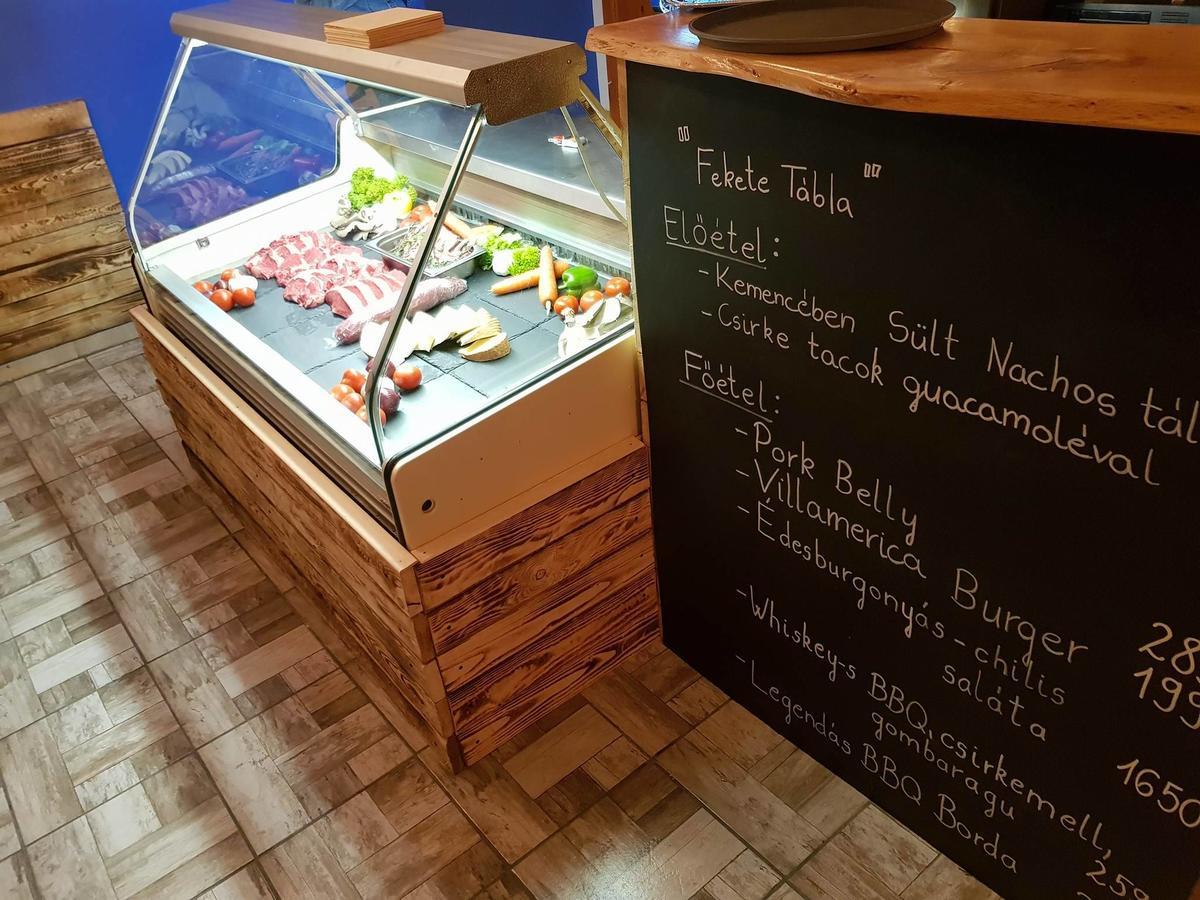 "Fekete Tábla"
Előétel:
-Kemencében Sült Nachos tál
-Csirke tacok guacamoléval
Főétel:
-Pork Belly
-Villamerica Burger
-Édesburgonyás-chilis
saláta 1650
-Whiskey-s BBQ, csirkemell,
gombaragu
-Legendás BBQ Borda